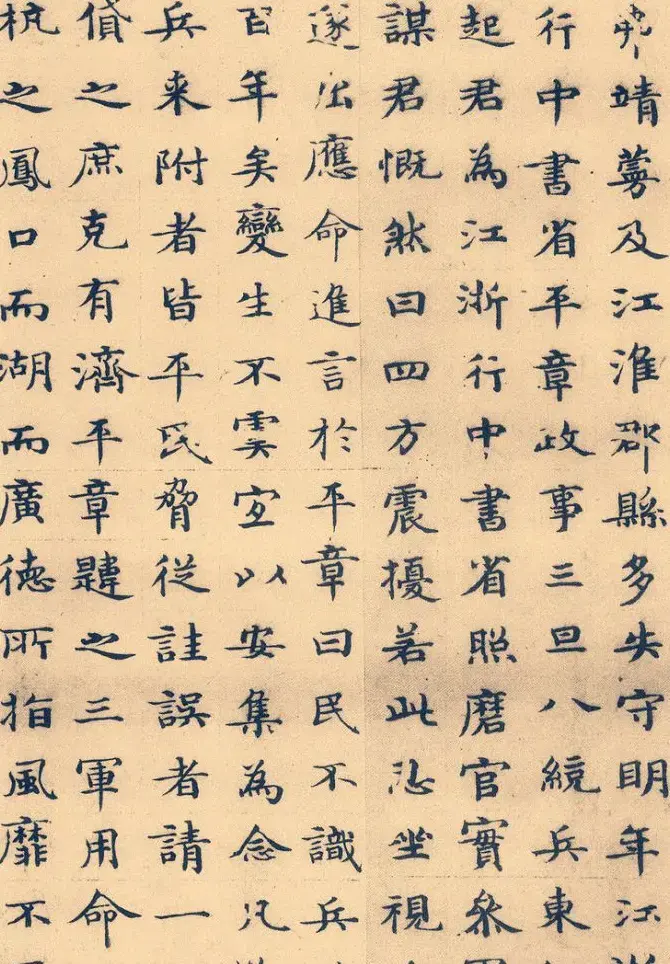 靖及江淮郡縣多失守明年江浙
行中書省平章政事三旦八統兵東
起君為江浙行中書省照磨官實叅
謀君慨然曰四方震擾若此忍坐視
遂出應命進言於平章曰民不識兵
百年矣變生不虞宜以安集為念凡
兵来附者皆平民脅從詿誤者請一
貸之庶克有濟平章韙之三軍用命
杭之鳳口而湖而廣德所指風靡不